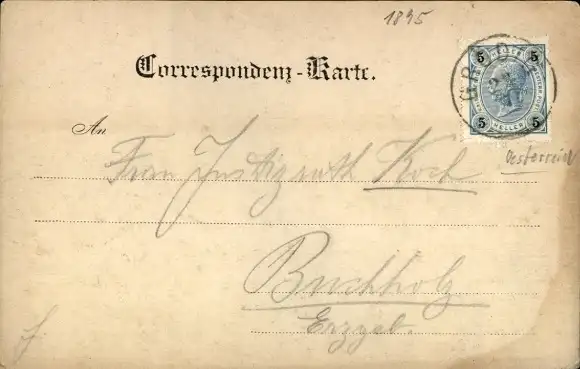 1895
Correspondenz-Karte.
5 5
5 HELLER 5
Oesterreich
An
Frau Justizrath Koch
Buchholz
Erzgeb.